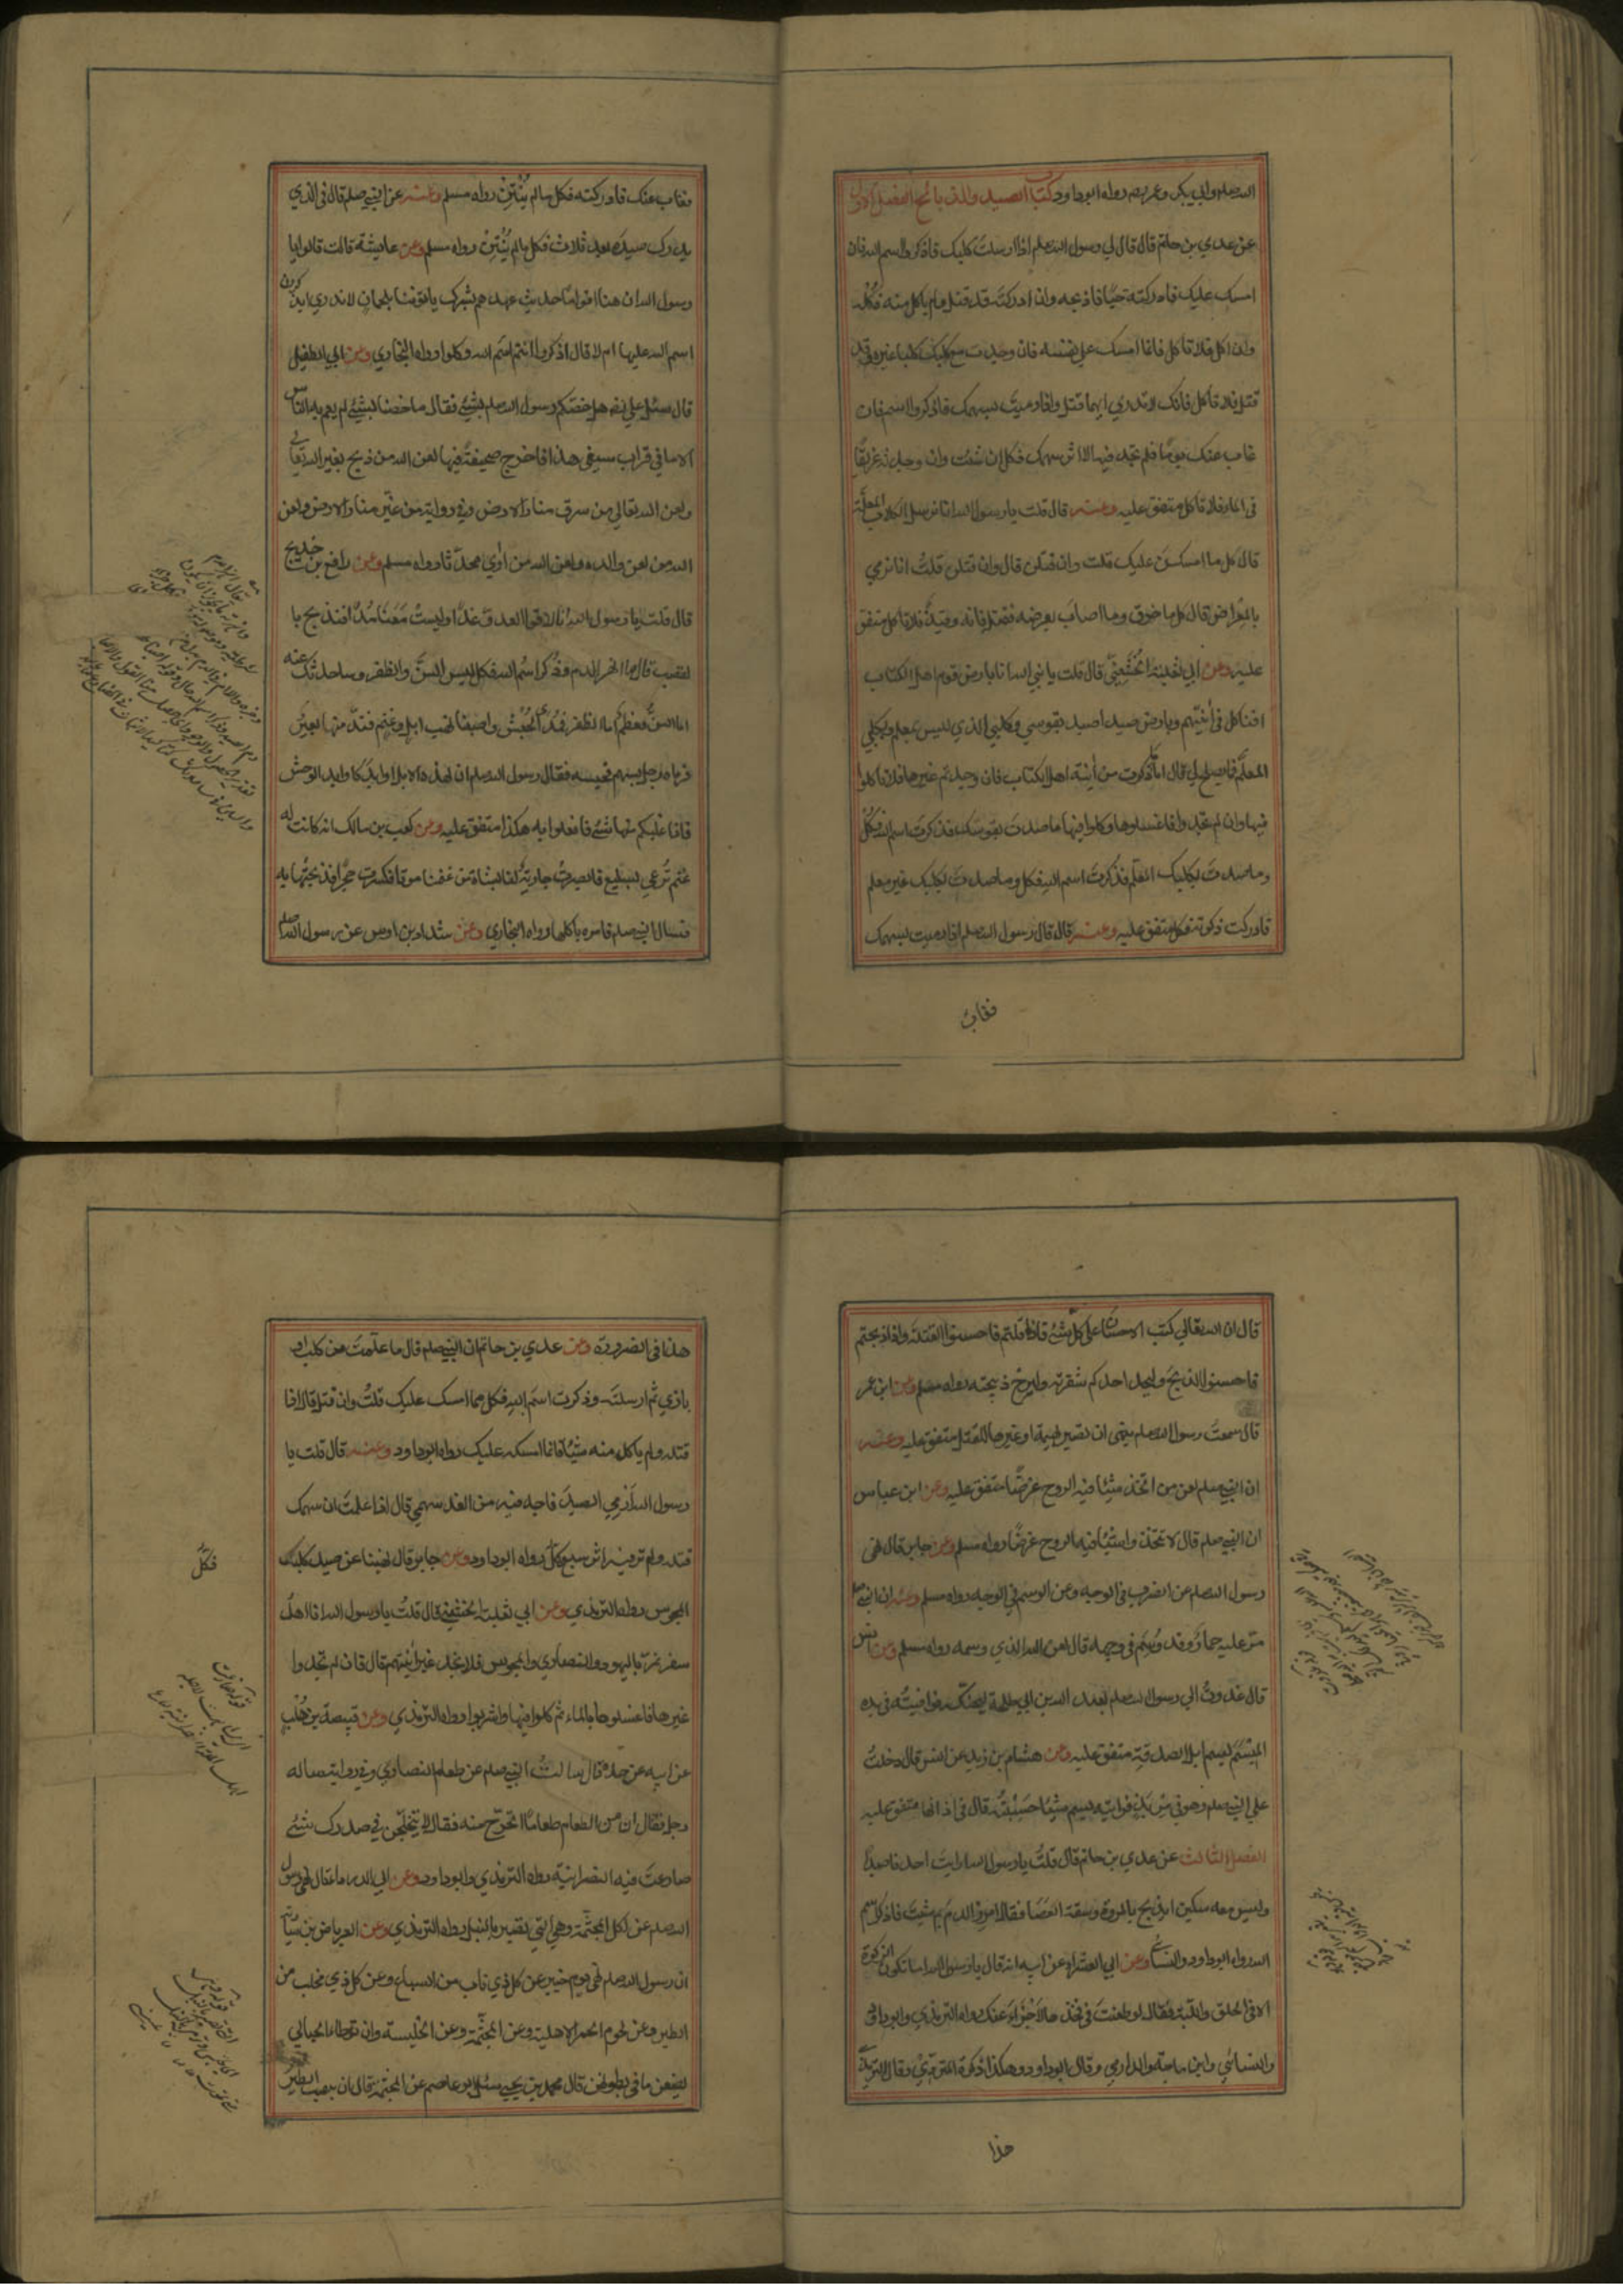 الله صلعم وابي بكر وعمر رضه رواه ابوداود كتاب الصيد والذبائح الفصل الاول
عن عدي بن حاتم قال قال لي رسول الله صلعم اذا ارسلتَ كلبك فاذكر اسم الله فان
امسك عليك فادركته حيًّا فاذبحه وان ادركته قد قتل ولم ياكل منه فكُلْه
وان اكل فلا تاكل فانما امسك على نفسه فان وجدت مع كلبك كلبا غيره وقد
قتل فلا تاكل فانك لا تدري ايهما قتل واذا رميتَ بسهمك فاذكر اسم فان
غاب عنك يومًا فلم تجد فيه الا اثر سهمك فكل ان شئت وان وجدته غريقًا
في الماء فلا تاكل متفق عليه وعنه قال قلت يا رسول الله انا نرسل الكلاب المعلَّمة
قال كل ما امسكن عليك قلت وان قتلن قال وان قتلن قلتُ انا نرمي
بالمِعْراض قال كل ما خزق وما اصابَ بعرضه فقتل فانه وقيذٌ فلا تاكل متفق
عليه وعن ابي ثعلبة الخُشَنِيّ قال قلت يا نبي الله انا بارض قوم اهل الكتاب
افناكل في آنيتهم وبارض صيد اصيد بقوسي وبكلبي الذي ليس بمعلم وبكلبي
المعلَّم فما يصلح لي قال امّا ما ذكرت من آنية اهل الكتاب فان وجدتم غيرها فلا تاكلوا
فيها وان لم تجدوا فاغسلوها وكلوا فيها وما صدتَ بقوسك فذكرتَ اسم الله فكُلْ
وما صدتَ بكلبك المعلّم فذكرتَ اسم الله فكل وما صدتَ بكلبك غير معلم
فادركت ذكوته فكل متفق عليه وعنه قال قال رسول الله صلعم اذا رميت بسهمك
فغاب
فغاب عنك فادركته فكل مالم يُنْتِنْ رواه مسلم وعنه عن النبي صلعم قال في الذي
يدرك صيده بعد ثلاث فكل مالم يُنْتِنْ رواه مسلم وعن عايشة قالت قالوا يا
رسول الله ان هنا اقواما حديث عهدهم بشرك ياتوننا بلحمان لا ندري ايذكرون
اسم الله عليها ام لا قال اذكروا انتم اسم الله وكلوا رواه البخاري وعن ابي الطفيل
قال سئل علي رضه هل خصكم رسول الله صلعم بشيء فقال ما خصنا بشيء لم يعم به الناس
الا ما في قراب سيفي هذا فاخرج صحيفة فيها لعن الله من ذبح بغير الله تعالى
ولعن الله تعالى من سرق منار الارض وفي رواية من غيّر منار الارض ولعن
الله من لعن والده ولعن الله من اٰوي محدثا رواه مسلم وعن رافع بن خديج
قال قلت يا رسول الله انا لاقوا العدو غدًا وليستْ مَعَنا مُدًى افنذبح با
لقصب قال ما انهر الدم وذُكر اسمُ الله فكل ليس السنَّ والظفر وساحدثك عنه
اما السنُّ فعظم اما الظفر فمُدَى الحُبْش واصبنا نهب ابل وغنم فندّ منها بعيرٌ
فرماه رجل بسهم فحبسه فقال رسول الله صلعم ان لهذه الابل اوابدَ كاوابد الوحش
فاذا غلبكم منها شئ فافعلوا به هكذا متفق عليه وعن كعب بن مالك انه كانت له
غنم تُرعى بسلع فابصرتْ جارية لنا بشاة من غنمنا موتا فكسرت حجرًا فذبحتها به
فسال النبي صلعم فامره باكلها رواه البخاري وعن شداد بن اوس عن رسول الله صلعم
قال ان الله تعالى كتب الاحسان على كل شئ فاذا قتلتم فاحسنوا القتلة واذا ذبحتم
فاحسنوا الذبح وليحد احدكم شفرته وليرح ذبيحته رواه مسلم وعن ابن عمر
قال سمعتُ رسول الله صلعم ينهى ان تصبر بهيمة او غيرها للقتل متفق عليه وعنه
ان النبي صلعم لعن من اتخذ شيئا فيه الروح غرضًا متفق عليه وعن ابن عباس
ان النبي صلعم قال لا تتخذوا شيئًا فيه الروح غرضًا رواه مسلم وعن جابر قال نهى
رسول الله صلعم عن الضرب في الوجه وعن الوسم في الوجه رواه مسلم وعنه ان النبي صلعم
مرّ عليه حمارٌ وقد وُسِمَ في وجهه قال لعن الله الذي وسمه رواه مسلم وعن انس
قال غدوتُ الى رسول الله صلعم بعبد الله بن ابي طلحة ليحنّكه فوافيتُه في يده
المِيْسَم يسم ابل الصدقة متفق عليه وعن هشام بن زيد عن انس قال دخلتُ
على النبي صلعم وهو في مِرْبَد فرايته يسم شيئا حَسِبْتُه قال في اذانها متفق عليه
الفصل الثالث عن عدي بن حاتم قال قلتُ يا رسول الله ارايتَ احدنا صيدا
وليس معه سكين ايذبح بالمروة وشقة العَصَا فقال امرر الدم بم شئتَ فاذكر اسم
الله رواه ابوداود والنسائي وعن ابي العشراء عن ابيه انه قال يا رسول الله اما تكون الذكوة
الا في الحلق واللبّة فقال لو طعنتَ في فخذها لاَجْزاءَ عنك رواه الترمذي وابوداود
والنسائي وابن ماجة والدارمي وقال ابوداود وهكذا ذكوة المتردّي وقال الترمذي
هذا
هذا في الضرورة وعن عدي بن حاتم ان النبي صلعم قال ما علّمتَ من كلب او
بازي ثم ارسلتَه وذكرت اسمَ الله فكل مما امسك عليك قلتُ وان قتل قال اذا
قتله ولم ياكل منه شيئًا فانما امسكه عليك رواه ابوداود وعنه قال قلت يا
رسول الله اَرْمي الصيدَ فاجد فيه من الغد سهمي قال اذا علمتَ ان سهمك
قتله ولم تر فيه اثر سبع فكل رواه ابوداود وعن جابر قال نهينا عن صيد كلب
المجوس رواه الترمذي وعن ابي ثعلبة الخشني قال قلتُ يا رسول الله انا اهلُ
سفر نمرّ باليهود والنصارى والمجوس فلا نجد غير آنيتهم قال فان لم تجدوا
غيرها فاغسلوها بالماء ثم كلوا فيها واشربوا رواه الترمذي وعن قبيصة بن هُلْبٍ
عن ابيه قال سالتُ النبي صلعم عن طعام النصارى وفي رواية ساله
رجل فقال ان من الطعام طعامًا اتحرّج منه فقال لا يتخلّجن في صدرك شئ
ضارعتَ فيه النصرانية رواه الترمذي وابوداود وعن ابي الدرداء قال نهى رسول
الله صلعم عن اكل المجثّمة وهي التي تصبر بالنبل رواه الترمذي وعن العرباض بن سارية
ان رسول الله صلعم نهى يوم خيبر عن كل ذي ناب من السباع وعن كل ذي مخلب من
الطير وعن لحوم الحمر الاهلية وعن المجثّمة وعن الخليسة وان توطأ الحبالى
ليضعن ما في بطونهن قال محمد بن يحيى سئل ابو عاصم عن المجثمة قال ان ينصب الطير
فكُلْ